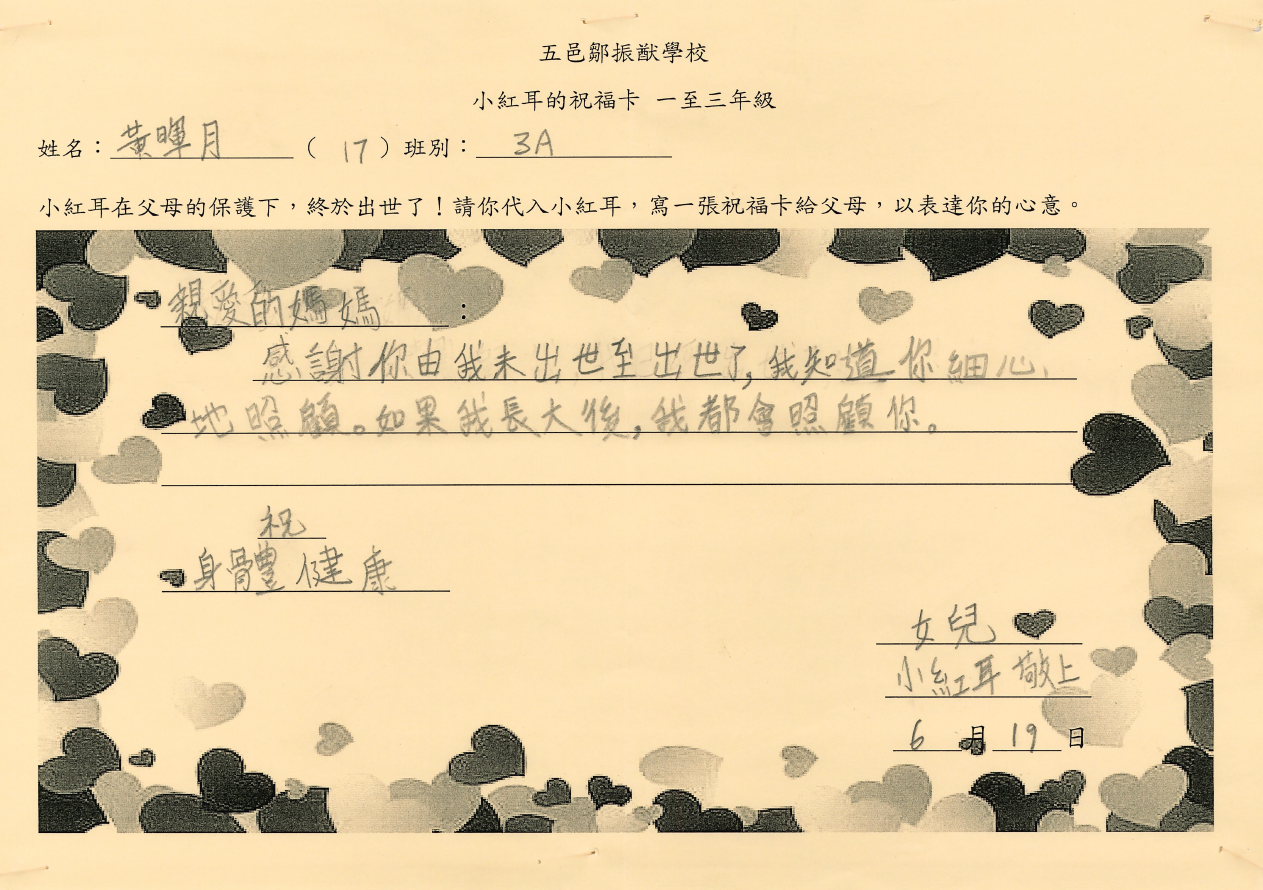 五邑鄒振猷學校
小紅耳的祝福卡 一至三年級
姓名：黃暉月（17）班別：3A
小紅耳在父母的保護下，終於出世了！請你代入小紅耳，寫一張祝福卡給父母，以表達你的心意。
親愛的媽媽：
感謝你由我未出世至出世了，我知道你細心
地照顧。如果我長大後，我都會照顧你。
祝
身體健康
女兒
小紅耳 敬上
6月19日